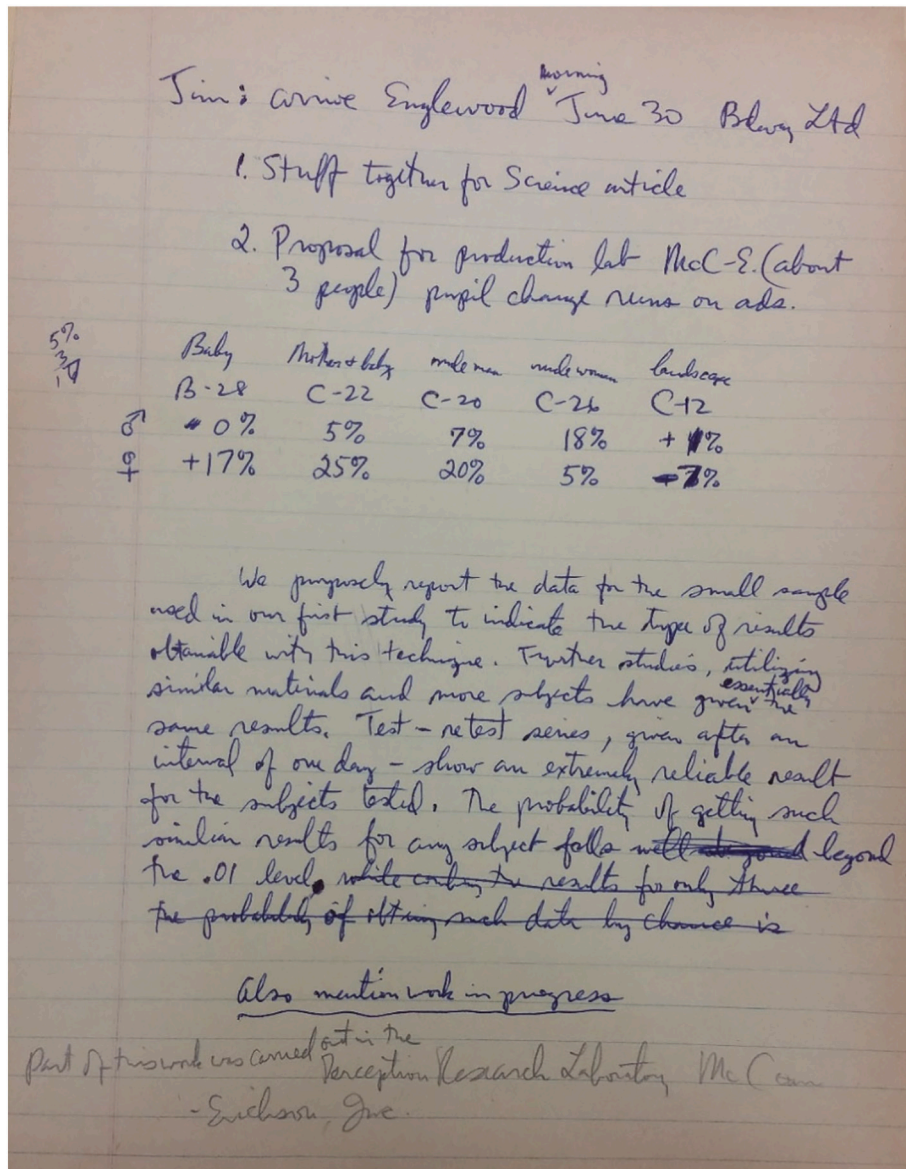 Jim: arrive Englewood morning June 30 Bdwy Ltd
1. Stuff together for Science article
2. Proposal for production lab McC-E. (about
3 people) pupil change runs on ads.
5%
3
Baby Mother + baby nude man nude woman landscape
B-28 C-22 C-20 C-26 C-12
♂ 0% 5% 7% 18% + 1%
♀ +17% 25% 20% 5% -7%
We purposely report the data for the small sample
used in our first study to indicate the type of results
obtainable with this technique. Further studies, utilizing
similar materials and more subjects have given essentially the
same results. Test - retest series, given after an
interval of one day - show an extremely reliable result
for the subjects tested. The probability of getting such
similar results for any subject falls well beyond
the .01 level. while the results for only three
the probability of obtaing such data by chance is
Also mention work in progress
Part of this work was carried out in the
Perception Research Laboratory McCann
-Erickson, Inc.